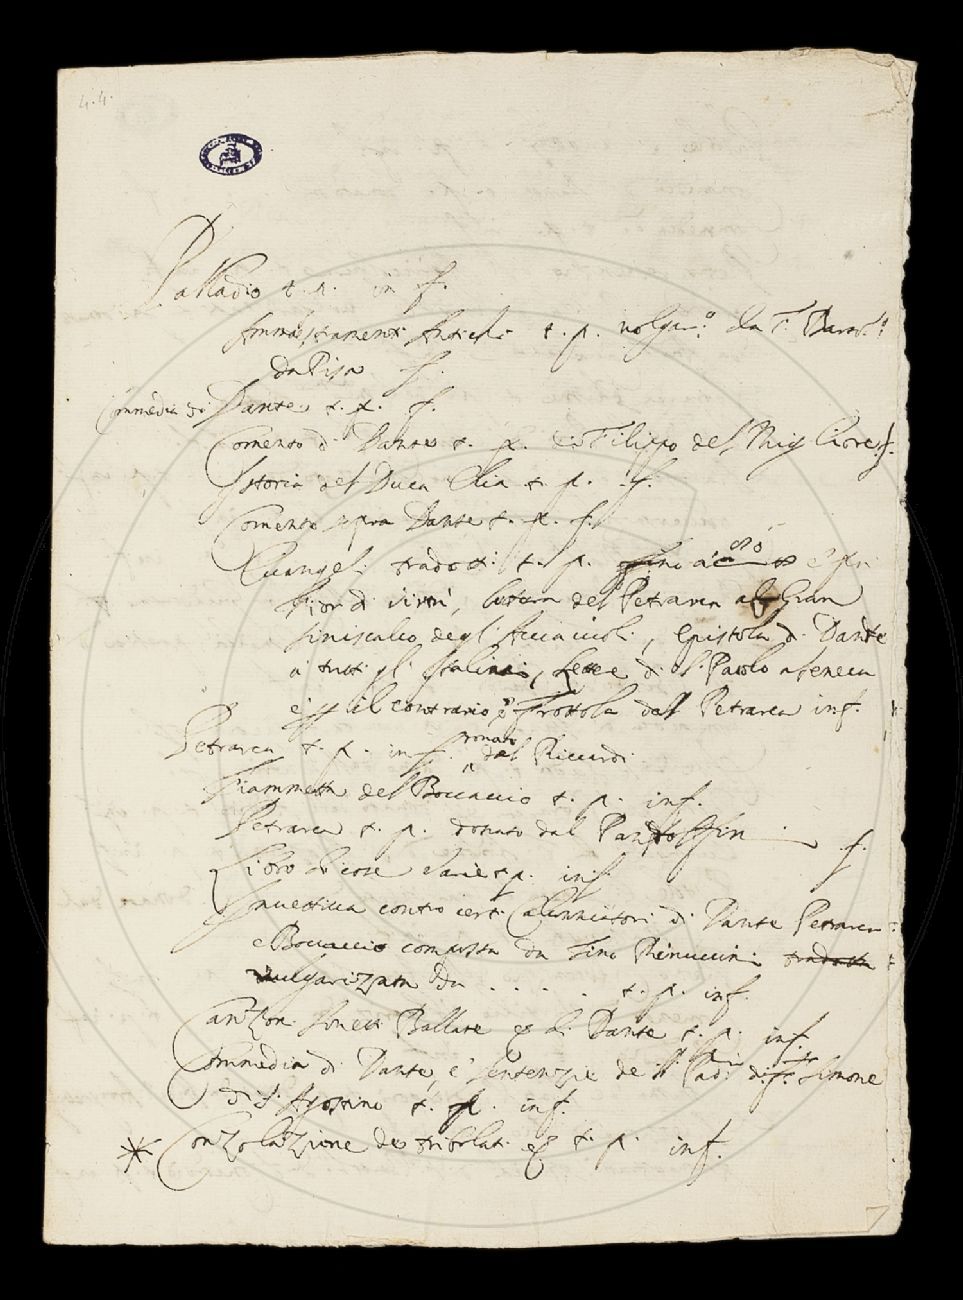 4.4.
Palladio t. p. in f.
Ammaestramenti Antichi t. p. volgar.o da F. Bart.o
da Pisa f.
Commedia di Dante t. p. f.
Comento di Dante t. p. di Filippo del Migliore f.
Istoria del Duca t. p. f.
Comento sopra Dante t. p. f.
Euangeli tradotti t. p. e
Fior di virtù, lettera del Petrarca al Gran
Siniscalco degl'Acciaivoli, Epistola di Dante
a tutti gl'Italiani, Lettere di S. Paolo a Seneca
e il contrario e Frottola del Petrarca inf.
Petrarca t. p. in f. donato dal Riccardi
Fiammetta del Boccaccio t. p. inf.
Petrarca t. p. donato dal f.
Libro di cose varie t. p. inf.
Inuettiva contro certi Calunniatori di Dante Petrarca
e Boccaccio composta da Cino Rinuccini tradotta
vulgarizzata da . . . . . t. p. inf.
Canzoni Sonetti Ballate &c di Dante t. p. inf.
Commedia di Dante, e Sentenzie de SS. Padri di Simone
di S. Agostino t. p. inf.
* Conzolazione de tribolati &c t. p. inf.